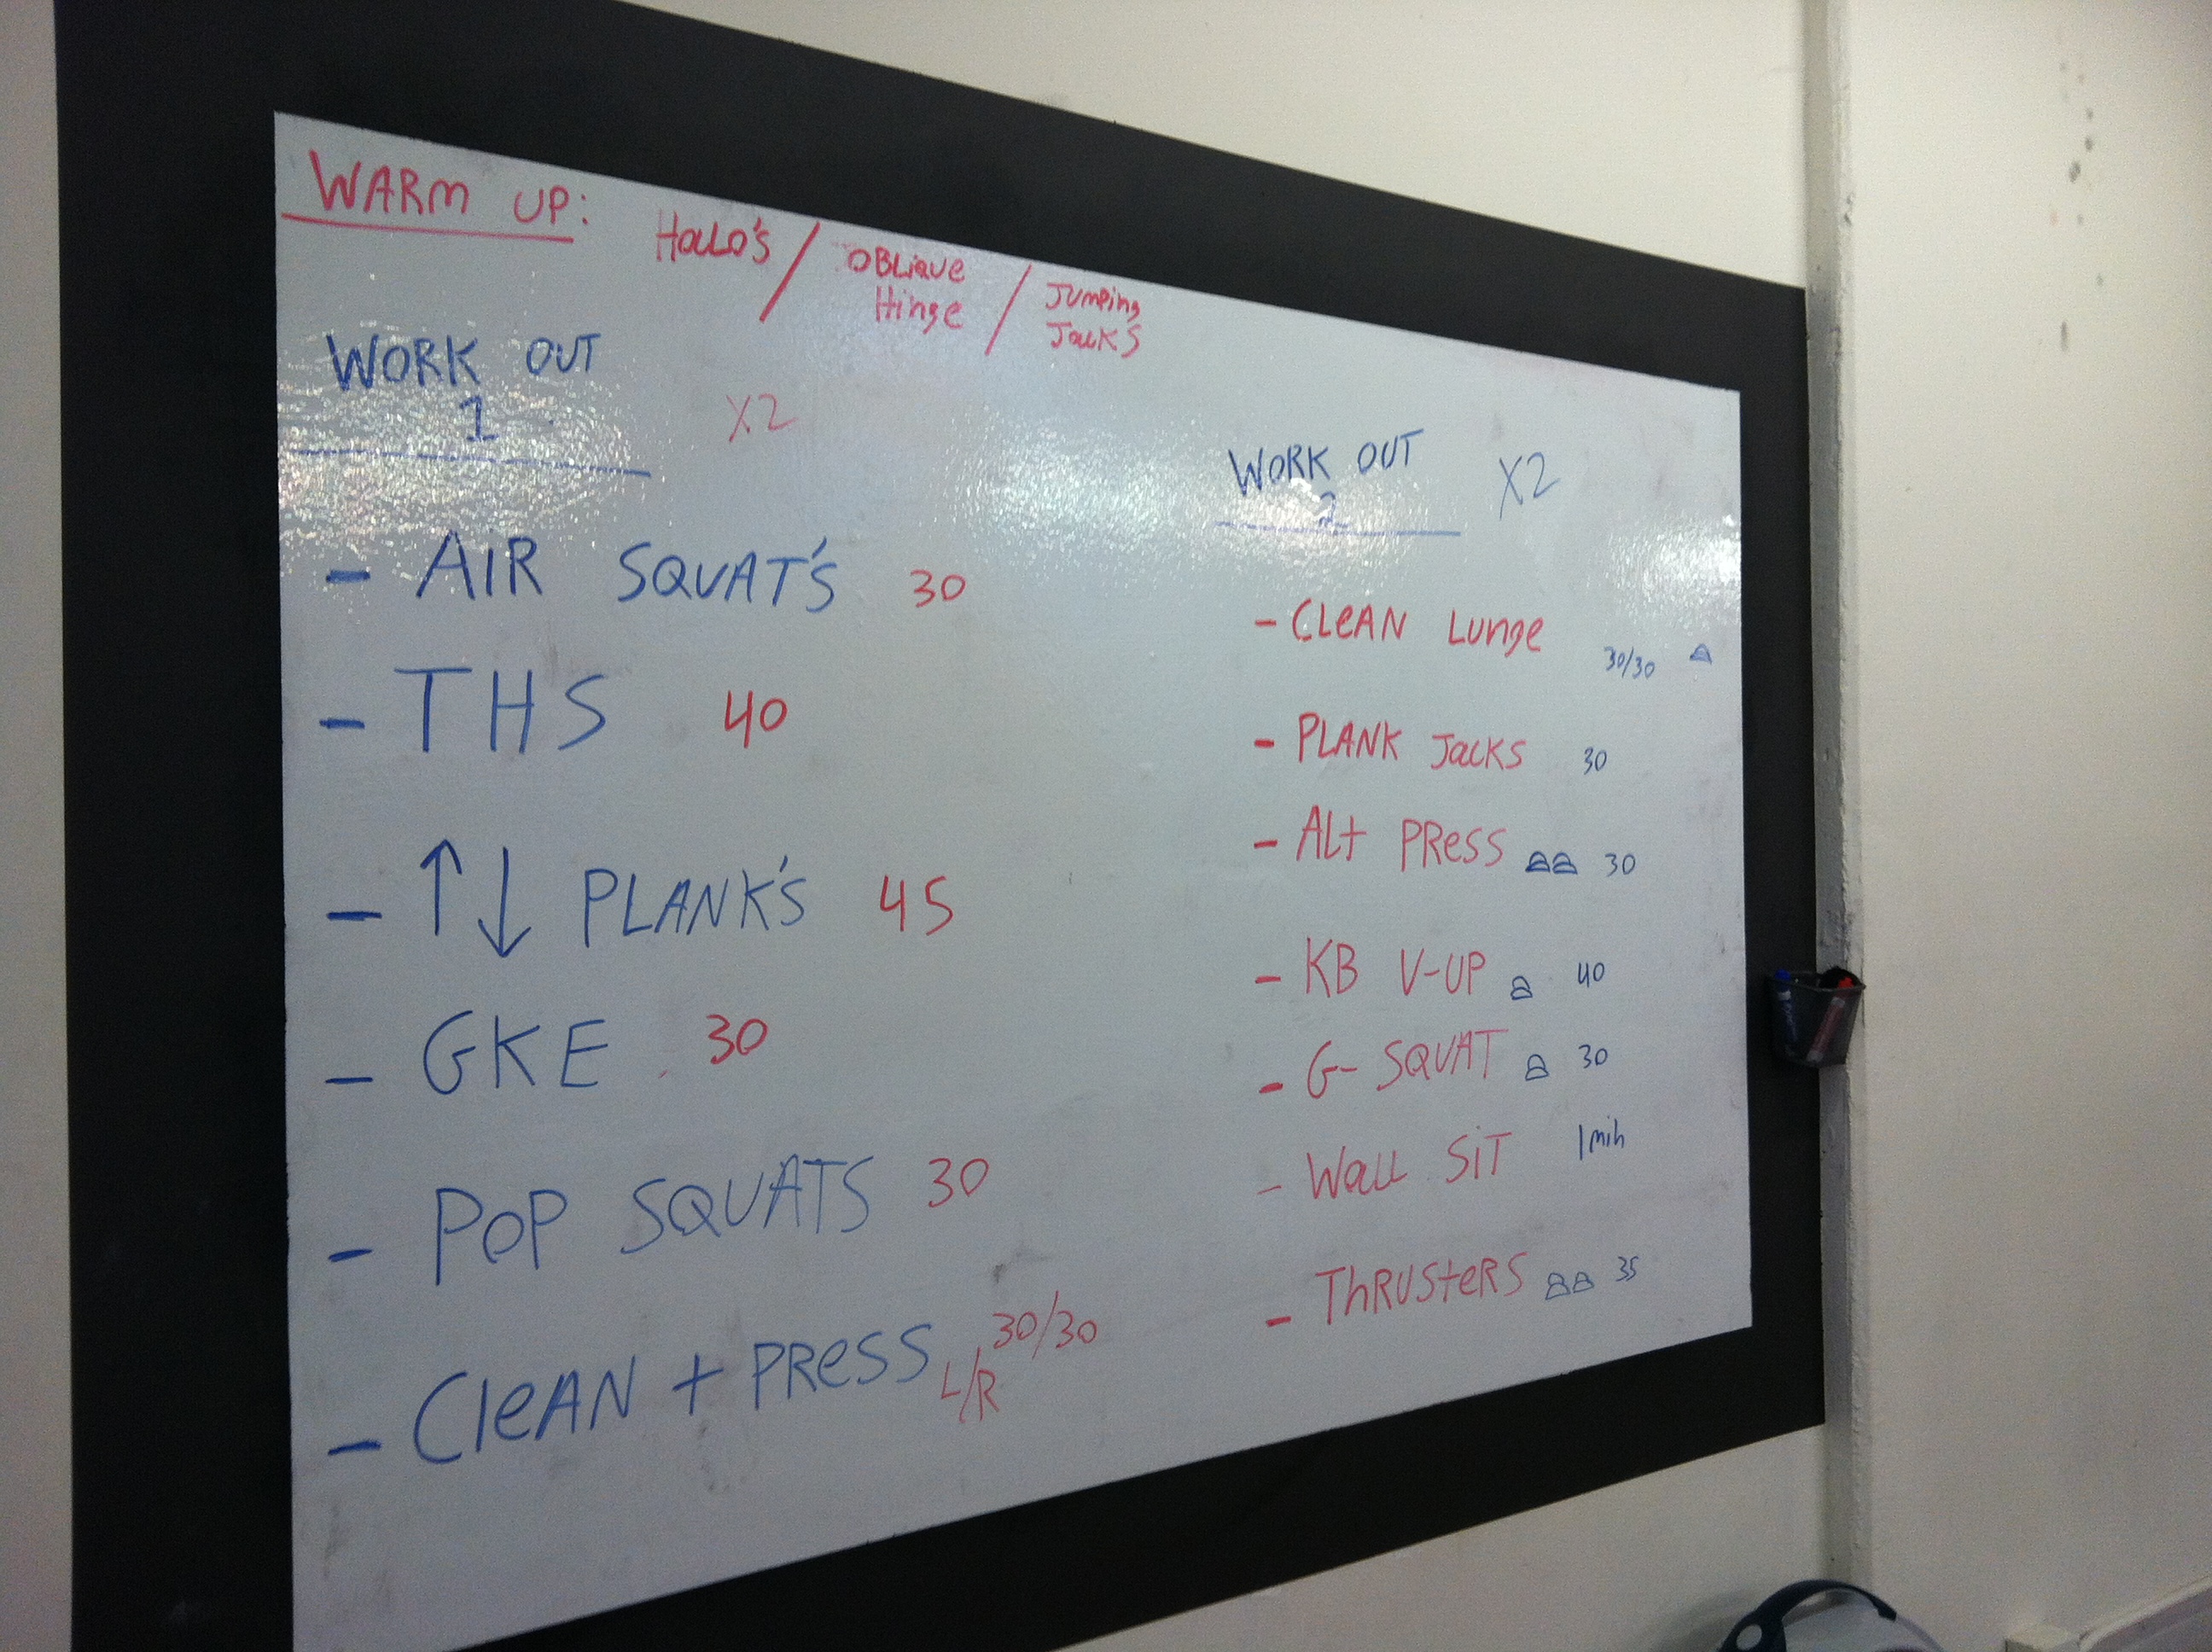 WARM UP: HALLO'S / OBLIQUE Hinge / Jumping JACKS
WORK OUT 1 X2
- AIR SQUAT'S 30
- THS 40
- ↑↓ PLANK'S 45
- GKE 30
- POP SQUATS 30
- CleAN + PRESS L/R 30/30
WORK OUT 2 X2
- CLeAN Lunge 30/30
- PLANK JACKS 30
- ALt PRess 30
- KB V-UP 40
- G-SQUAT 30
- WALL SiT 1 min
- ThRUSteRS 35